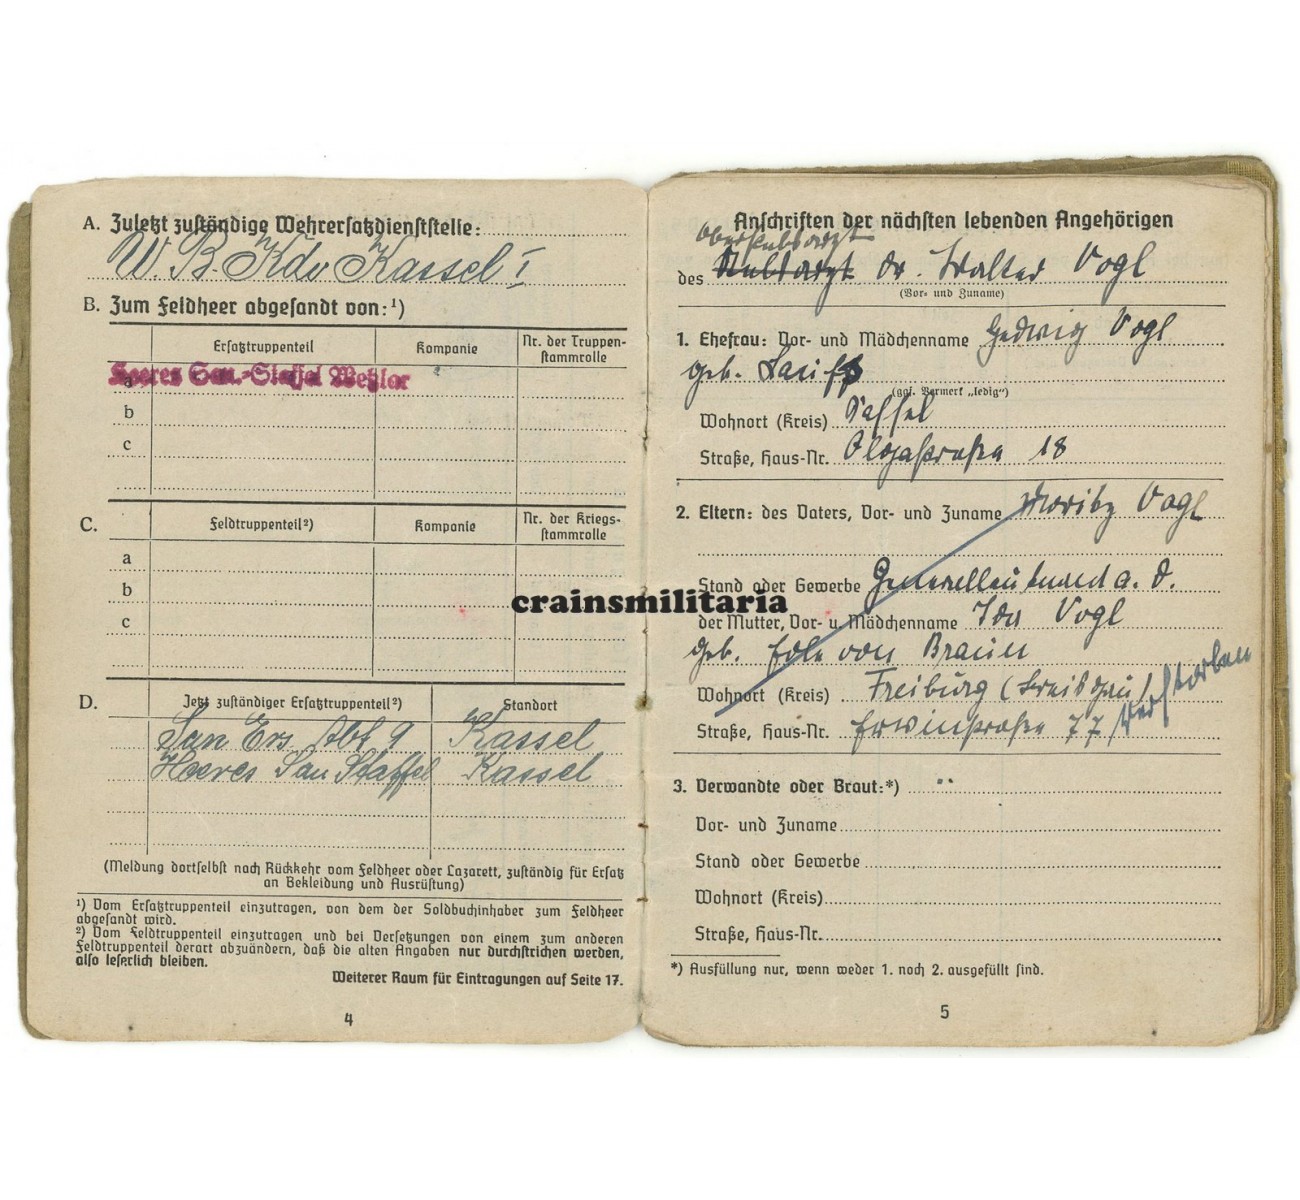 A. Zuletzt zuständige Wehrersatzdienststelle:
W. B. Kdo Kassel I
B. Zum Feldheer abgesandt von:¹)
Ersatztruppenteil Kompanie Nr. der Truppen-
stammrolle
a Heeres San.-Staffel Wetzlar
b
c
C. Feldtruppenteil²) Kompanie Nr. der Kriegs-
stammrolle
a
b
c
D. Jetzt zuständiger Ersatztruppenteil²) Standort
San Ers Abt 9 Kassel
Heeres San Staffel Kassel
(Meldung dortselbst nach Rückkehr vom Feldheer oder Lazarett, zuständig für Ersatz
an Bekleidung und Ausrüstung)
¹) Vom Ersatztruppenteil einzutragen, von dem der Soldbuchinhaber zum Feldheer
abgesandt wird.
²) Vom Feldtruppenteil einzutragen und bei Versetzungen von einem zum anderen
Feldtruppenteil derart abzuändern, daß die alten Angaben nur durchstrichen werden,
also leserlich bleiben.
Weiterer Raum für Eintragungen auf Seite 17.
4
Anschriften der nächsten lebenden Angehörigen
Oberstabsarzt
des Stabsarzt Dr. Walter Vogl
(Vor- und Zuname)
1. Ehefrau: Vor- und Mädchenname Hedwig Vogl
geb.
(ggf. Vermerk „ledig“)
Wohnort (Kreis) Kassel
Straße, Haus-Nr. Olgastraße 18
2. Eltern: des Vaters, Vor- und Zuname Moritz Vogl
Stand oder Gewerbe Generalleutnant a. D.
der Mutter, Vor- u. Mädchenname Ida Vogl
geb. Edle von Braun
Wohnort (Kreis) Freiburg (Breisgau)
Straße, Haus-Nr. Erwinstraße 77 verstorben
3. Verwandte oder Braut:*)
Vor- und Zuname
Stand oder Gewerbe
Wohnort (Kreis)
Straße, Haus-Nr.
*) Ausfüllung nur, wenn weder 1. noch 2. ausgefüllt sind.
5
crainsmilitaria